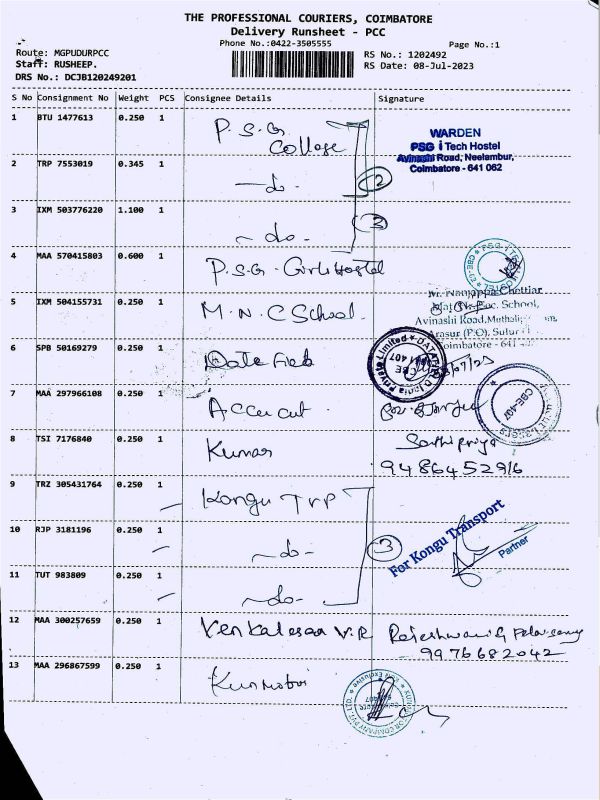 THE PROFESSIONAL COURIERS, COIMBATORE
Delivery Runsheet - PCC
Phone No.:0422-3505555
Page No.:1
Route: MGPUDURPCC
RS No.: 1202492
Staff: RUSHEEP.
RS Date: 08-Jul-2023
DRS No.: DCJB120249201
S No Consignment No Weight PCS Consignee Details Signature
1 BTU 1477613 0.250 1 P.S.G. College
WARDEN
PSG i Tech Hostel
Avinashi Road, Neelambur,
Coimbatore - 641 062
2 TRP 7553019 0.345 1 -do- 2
3 IXM 503776220 1.100 1 -do- 3
4 MAA 570415803 0.600 1 P.S.G. Girls Hostel
5 IXM 504155731 0.250 1 M.N.C School
M. Nanjappa Chettiar
Mat. Hr. Sec. School,
Avinashi Road,
Arasur (P.O), Sulur
Coimbatore - 641
6 SPB 50169279 0.250 1 Data Field
7 MAA 297966108 0.250 1 Accu cut
CBE-407
8 TSI 7176840 0.250 1 Kumar Sathipriya
9486452916
9 TRZ 305431764 0.250 1 Kongu TRP
10 RJP 3181196 0.250 1 -do- 3
For Kongu Transport
Partner
11 TUT 983809 0.250 1 -do-
12 MAA 300257659 0.250 1 Venkalesaa V.R Rajeshwari G
9976682042
13 MAA 296867599 0.250 1